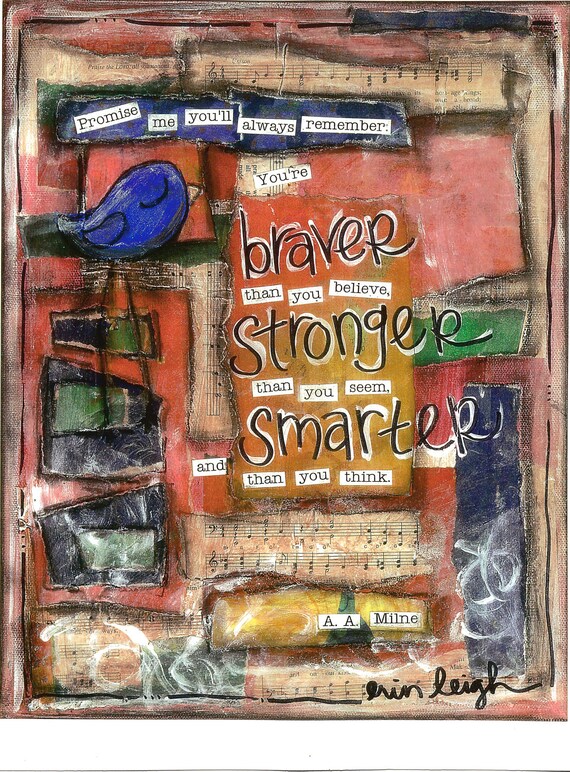 Praise the Lord, all
Promise me you'll always remember:
You're
braver
than you believe,
Stronger
than you seem,
Smarter
and than you think.
A. A. Milne
erin leigh